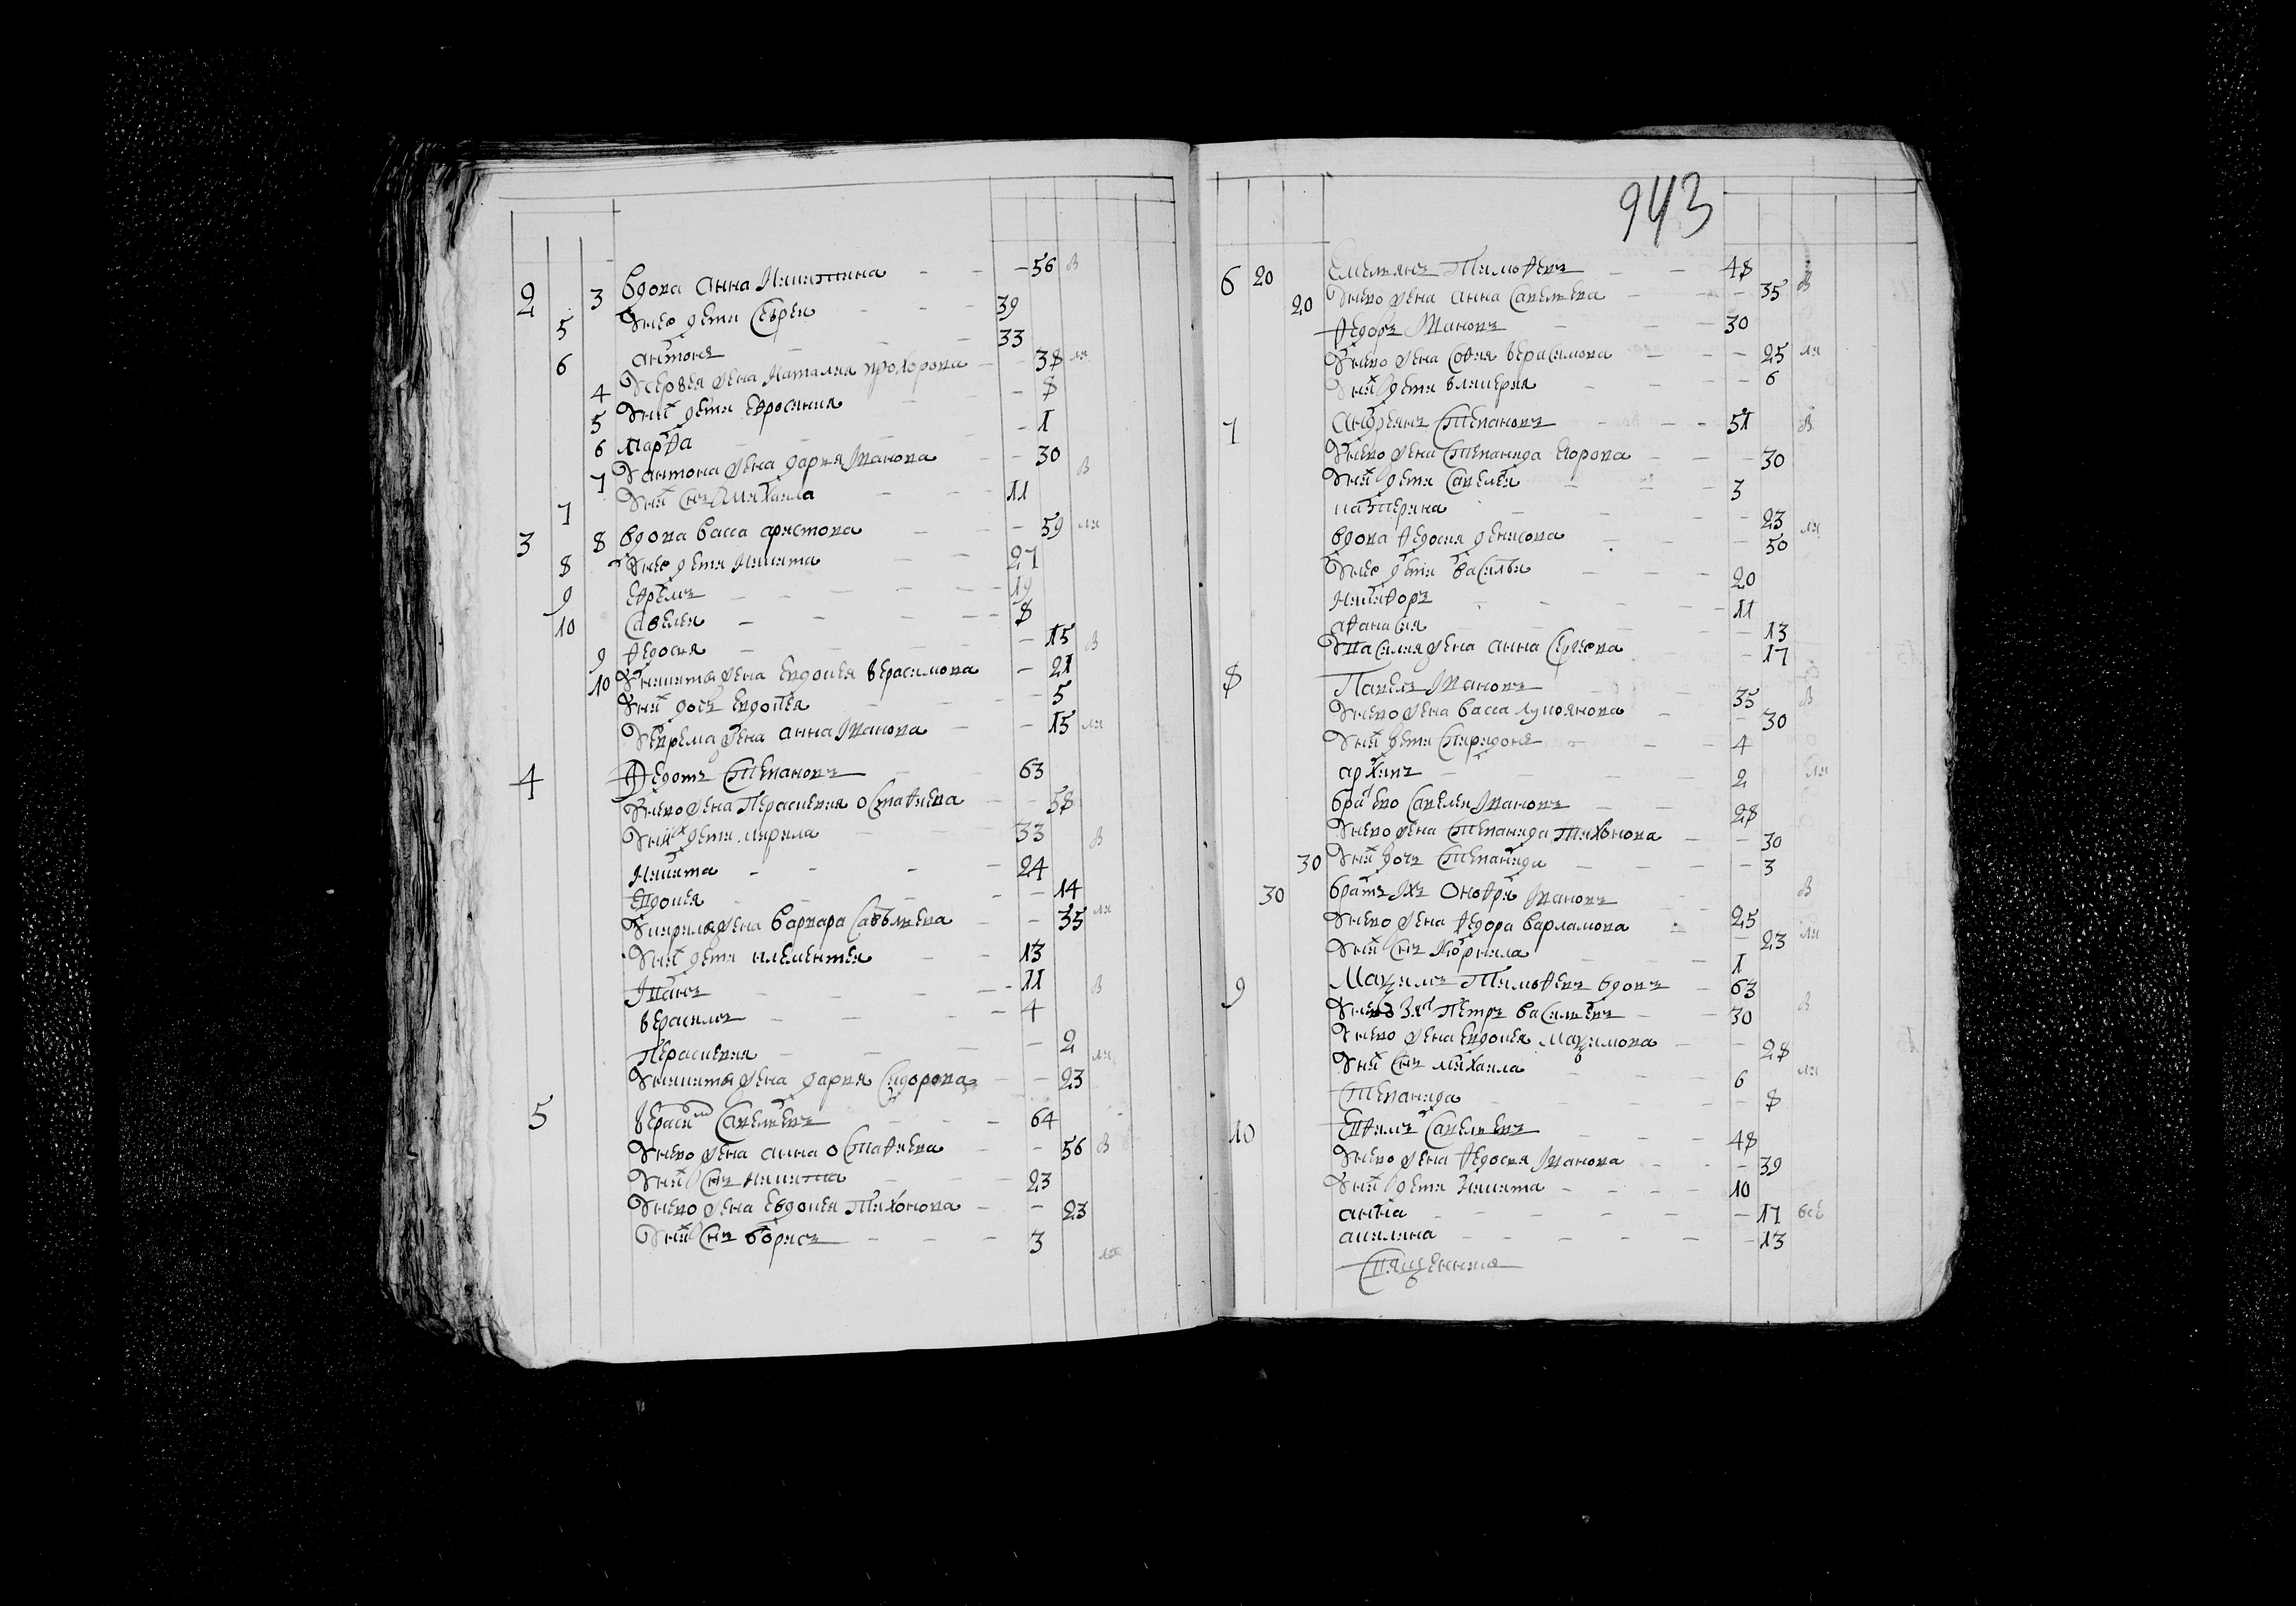 2 3 вдова Анна Никитина — — 56 в
5 У нее дети Сергеи — — 39
6 антонъ — — 33
4 У Сергея жена Наталия прохорова — 38 ли
5 У них дети Ефросиния — — 8
6 марфа — — 1
7 У антона жена дария Иванова — — 30 в
7 У них снъ Михаила — — 11
3 8 вдова васса аристова — — 59 ли
8 У нее дети Никита — — 27
9 ефремъ — — 19
10 Савелеи — — 8
9 федосия — — 15 в
10 У никиты жена Евдокея герасимова — 21
У них дочь Евдокея — 5
У Ефрема жена анна Иванова — — 15 ли
4 Федотъ Степановъ — — 63
У него жена Парасковия остафиева — — 58
У них дети кирила — — 33 в
Никита — — 24
Евдокея — — 14
У кирилы жена варвара Савельева — — 35 ли
У них дети клементеи — — 13
Иванъ — — 11 в
герасимъ — — 4
Парасковия — — 2
У никиты жена дария Сидорова — — 23 ли
5 герасим Савельевъ — — 64
У него жена анна остафиева — — 56 в
У них снъ никита — — 23
У него жена Евдокея Тихонова — — 23
У них снъ борисъ — — 3 ли
943
6 20 Емельянъ Тимофеевъ — — 48
20 У него жена анна Савельева — — 35 в
федоръ Ивановъ — — 30
У него жена София герасимова — — 25 ли
У них дети гликерия — — 6
7 Андреянъ Степановъ — — 51 в
У него жена Степанида егорова — — 30
У них дети Савелеи — — 3
катерина — — 23
вдова федосия денисова — — 50 ли
У нее дети василеи — — 20
Никифоръ — — 11
афанасия — — 13
У василия жена анна Сергеева — — 17
8 Павелъ Ивановъ — — 35 в
У него жена васса лукоянова — — 30
У них дети Спиридонъ — — 4
архипъ — — 2 ли
брат ево Савелеи Ивановъ — — 28
У него жена Степанида Тихонова — — 30
30 У них дочь Степанида — — 3
30 братъ Ихъ Онофреи Ивановъ — — 25 в
У него жена федора варламова — — 23 ли
У них снъ Кирила — — 1
9 Маѯимъ Тимофеевъ вдовъ — 63
У него зять Петръ васильевъ — — 30 в
У него жена евдокея маѯимова — — 28
У них снъ михаила — — 6 ли
Степанида — — 8
10 Ефимъ Савельевъ — — 48
У него жена федосия Иванова — — 39
У них дети Никита — — 10
анна — — 17 все
акилина — — 13
Священникъ